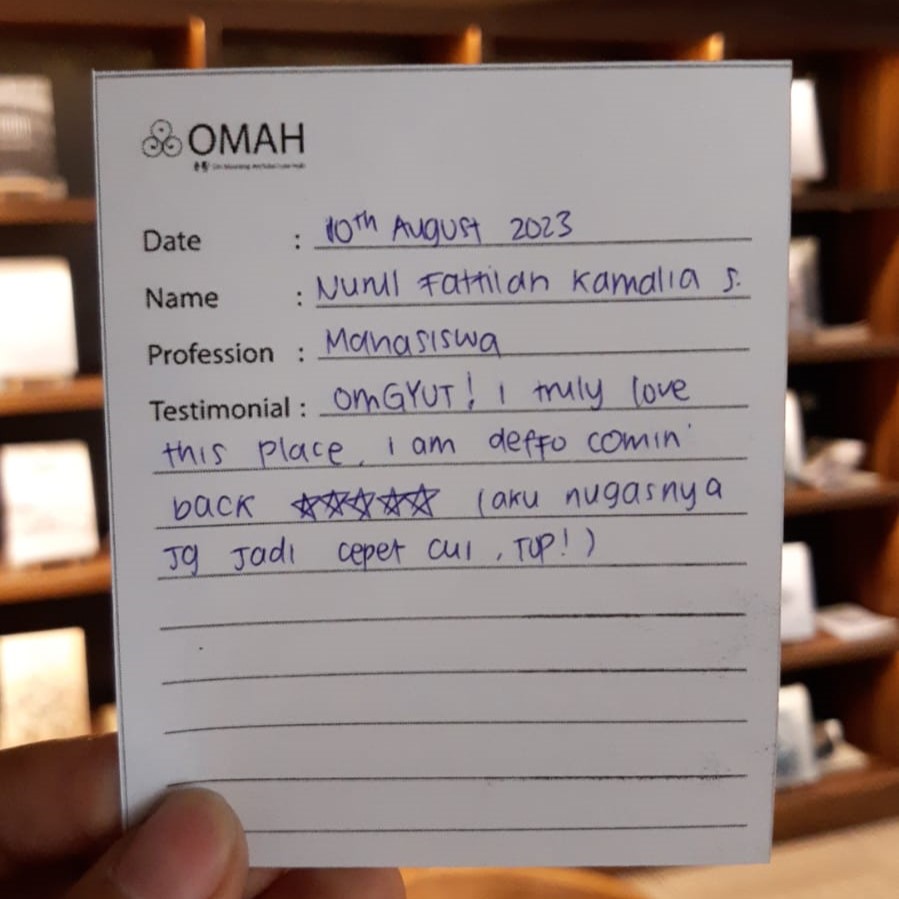 OMAH
Date : 10th August 2023
Name : Nurul Fattilah Kamalia S.
Profession : Mahasiswa
Testimonial : OmGYUT! I truly love
this place, i am deffo comin'
back ☆☆☆☆☆ (aku nugasnya
Jg Jadi cepet cui, TOP!)